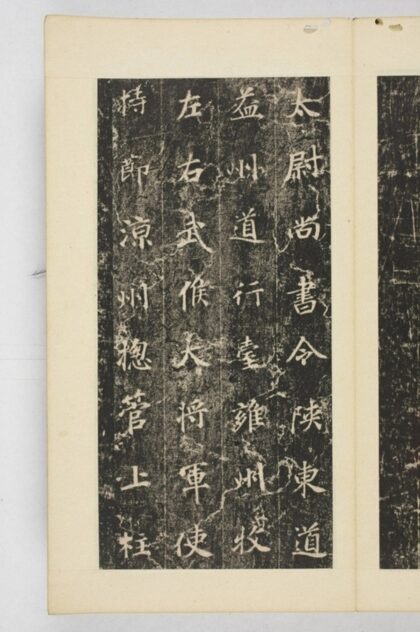 太尉尚書令陝東道
益州道行臺雍州牧
左右武候大将軍使
持節涼州揔管上柱